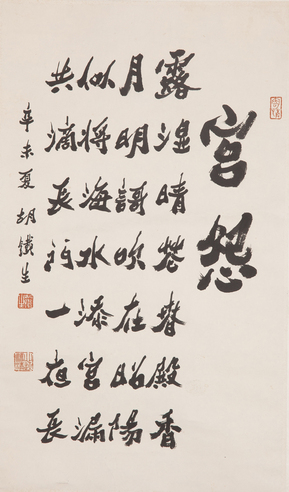 宮怨
露溼晴花春殿香
月明謌吹在昭陽
似將海水添宮漏
共滴長門一夜長
辛未夏 胡鐵生